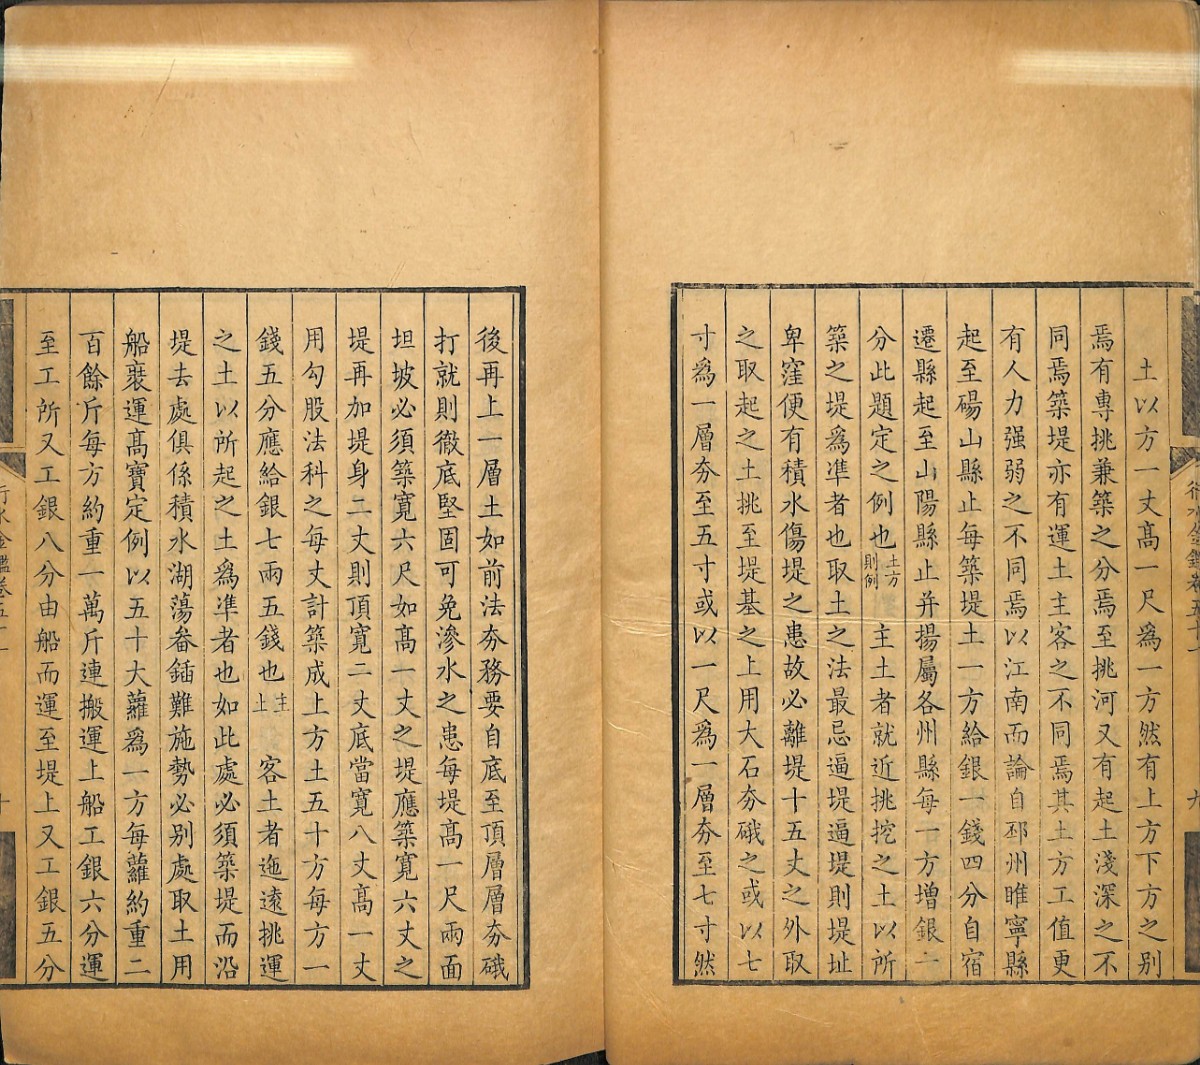 土以方一丈髙一尺爲一方然有上方下方之别
焉有專挑兼築之分焉至挑河又有起土淺深之不
同焉築堤亦有運土主客之不同焉其土方工值更
有人力强弱之不同焉以江南而論自邳州睢寧縣
起至碭山縣止每築堤土一方給銀一錢四分自宿
遷縣起至山陽縣止并揚屬各州縣每一方增銀一
分此題定之例也土方則例 主土者就近挑挖之土以所
築之堤爲凖者也取土之法最忌逼堤逼堤則堤址
卑窪便有積水傷堤之患故必離堤十五丈之外取
之取起之土挑至堤基之上用大石夯硪之或以七
寸爲一層夯至五寸或以一尺爲一層夯至七寸然
後再上一層土如前法夯務要自底至頂層層夯硪
打就則徹底堅固可免滲水之患每堤髙一尺兩面
坦坡必須築寛六尺如髙一丈之堤應築寛六丈之
堤再加堤身二丈則頂寛二丈底當寛八丈髙一丈
用勾股法科之每丈計築成上方土五十方每方一
錢五分應給銀七兩五錢也主上 客土者迤逺挑運
之土以所起之土爲凖者也如此處必須築堤而沿
堤去處俱係積水湖蕩畚鍤難施勢必别處取土用
船裝運髙寶定例以五十大蘿爲一方每蘿約重二
百餘斤每方約重一萬斤連搬運上船工銀六分運
至工所又工銀八分由船而運至堤上又工銀五分